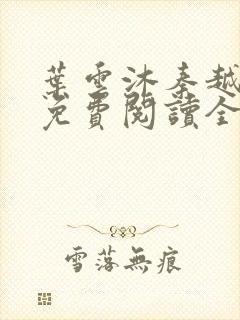 葉雲沐秦越
免費閱讀全
雪落無痕